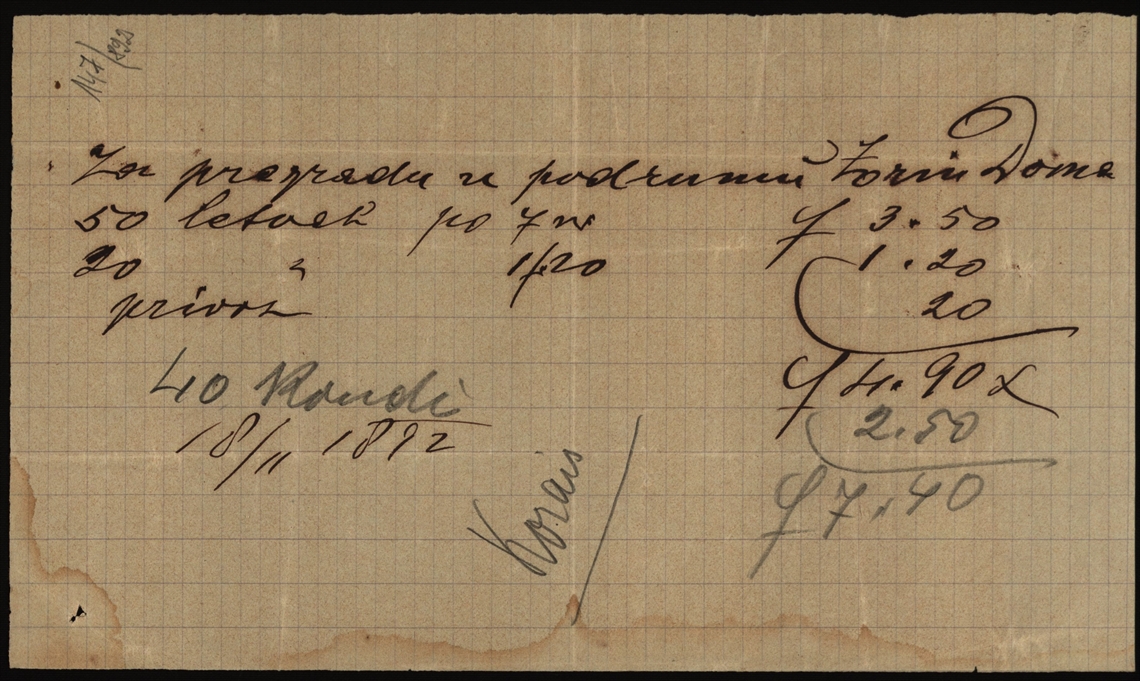 147/892
Za pregradu u podrumu Zorin Doma
50 letvah po 7 nr f 3.50
20 " 1f.20 1.20
privoz 20
f 4.90 x
40 Kondi 2.50
18/11 1892 f 7.40
Korais